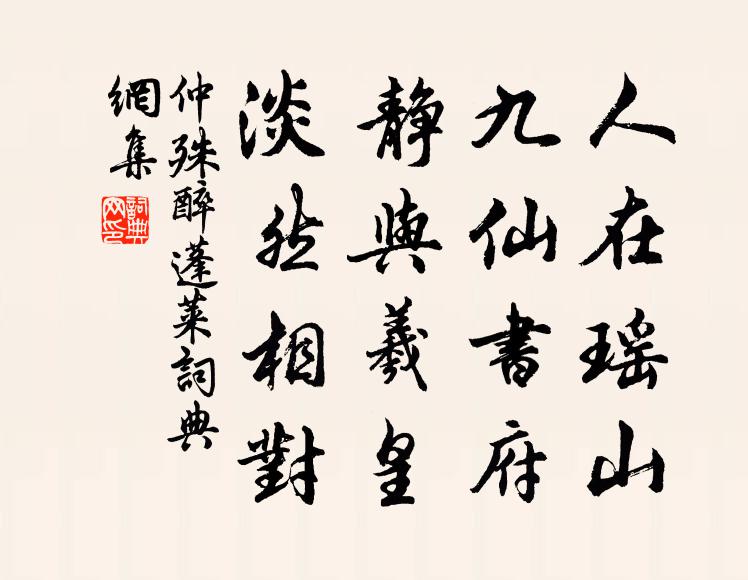 人在瑶山
九仙書府
静與羲皇
淡然相對
仲殊醉蓬萊詞典
網集
詞典
网印